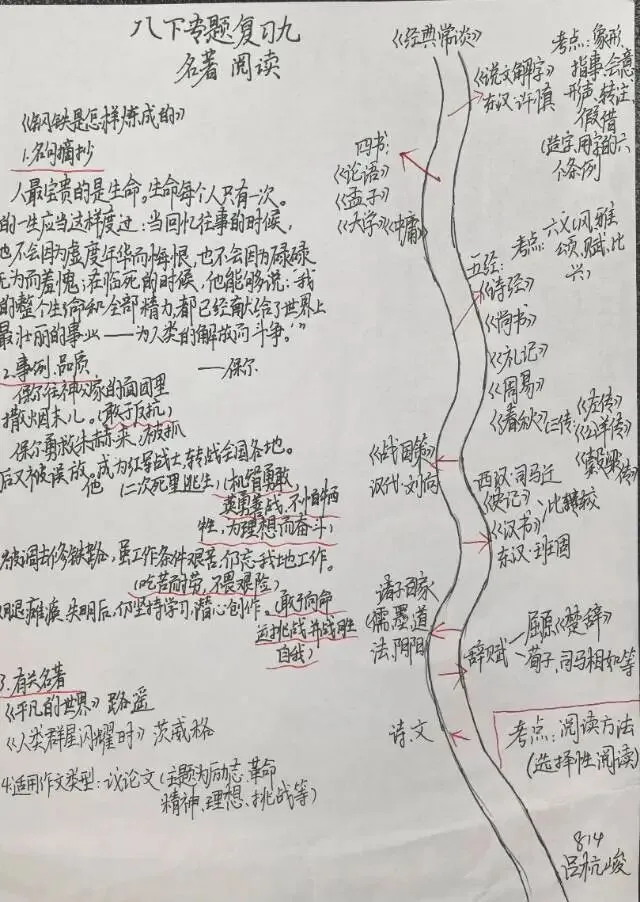 八下专题复习九
名著 阅读
《钢铁是怎样炼成的》
1.名句摘抄
人最宝贵的是生命。生命每个人只有一次。
的一生应当这样度过：当回忆往事的时候，
也不会因为虚度年华而悔恨，也不会因为碌碌
无为而羞愧；在临死的时候，他能够说：“我
的整个生命和全部精力，都已经献给了世界上
最壮丽的事业——为人类的解放而斗争。”
——保尔
2.事例、品质
保尔往神父家的面团里
撒烟末儿。（敢于反抗）
保尔勇救朱赫来，被抓
后又被误放。成为红军战士，转战全国各地。
他 二次死里逃生，（机智勇敢，
英勇善战，不怕牺
牲，为理想而奋斗）
被调去修铁路，虽工作条件艰苦，仍忘我地工作。
（吃苦耐劳，不畏艰险）
腿瘫痪，失明后，仍坚持学习，潜心创作。（敢于向命
运挑战并战胜
自我）
3.有关名著
《平凡的世界》路遥
《人类群星闪耀时》茨威格
4.适用作文类型：议论文（主题为励志、革命
精神、理想、挑战等）
《经典常谈》
《说文解字》
东汉·许慎
考点：象形
指事、会意、
形声、转注、
假借
（造字、用字的六
个条例
四书：
《论语》
《孟子》
《大学》《中庸》
考点：六义（风、雅
颂、赋、比
兴）
五经：
《诗经》
《尚书》
《礼记》
《周易》
《春秋》三传
《左传》
《公羊传》
《穀梁传》
《战国策》
汉代·刘向
西汉·司马迁
《史记》、比较
《汉书》
东汉·班固
诸子百家
（儒、墨、道
法、阴阳）
辞赋
屈原《楚辞》
荀子、司马相如等
诗、文
考点：阅读方法
（选择性阅读）
814
吕杭峻